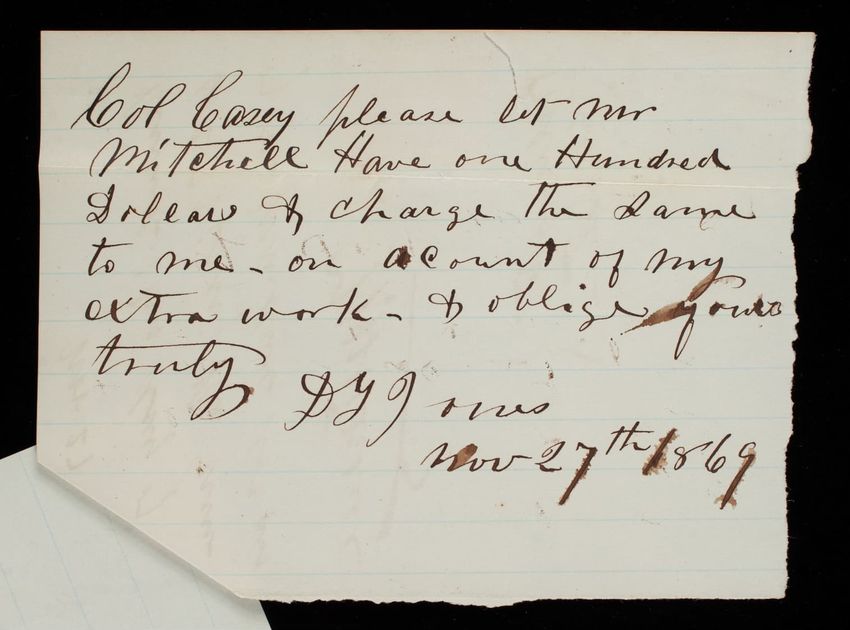 Col Casey please let Mr
Mitchell Have one Hundred
Dolears & charge the same
to me - on acount of my
extra work - & oblige yours
truly
D Y Jones
Nov 27th 1869